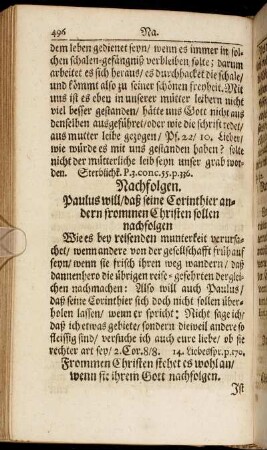 496 Na.
dem leben gedienet seyn/ wenn es immer in sol-
chen schalen-gefängniß verbleiben solte; darum
arbeitet es sich heraus/ es durchhacket die schale/
und kömmt also zu seiner schönen freyheit. Mit
uns ist es eben in unserer mütter leibern nicht
viel besser gestanden/ hätte uns Gott nicht aus
denselben ausgeführet/ oder wie die schrift redet/
aus mutter leibe gezogen/ Ps. 22/ 10. Lieber/
wie würde es mit uns gestanden haben? solte
nicht der mütterliche leib seyn unser grab wor-
den. Sterblichk. P. 3. conc. 55. p. 336.
Nachfolgen.
Paulus will/ daß seine Corinthier an-
dern frommen Christen sollen
nachfolgen
Wie es bey reisenden munterkeit verursa-
chet/ wenn andere von der gesellschafft früh auf
seyn/ wenn sie frisch ihren weg wandern/ daß
dannenhero die übrigen reise-gefehrten der glei-
chen nachmachen: Also will auch Paulus/
daß seine Corinthier sich doch nicht sollen über-
holen lassen/ wenn er spricht: Nicht sage ich/
daß ich etwas gebiete/ sondern dieweil andere so
fleissig sind/ versuche ich auch eure liebe/ ob sie
rechter art sey/ 2. Cor. 8/8. 14. Liebesspr. p. 170.
Frommen Christen stehet es wohl an/
wenn sie ihrem Gott nachfolgen.
Ist